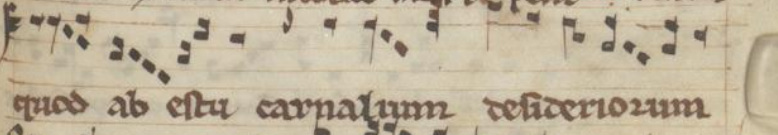 quod ab estu carnalium desideriorum